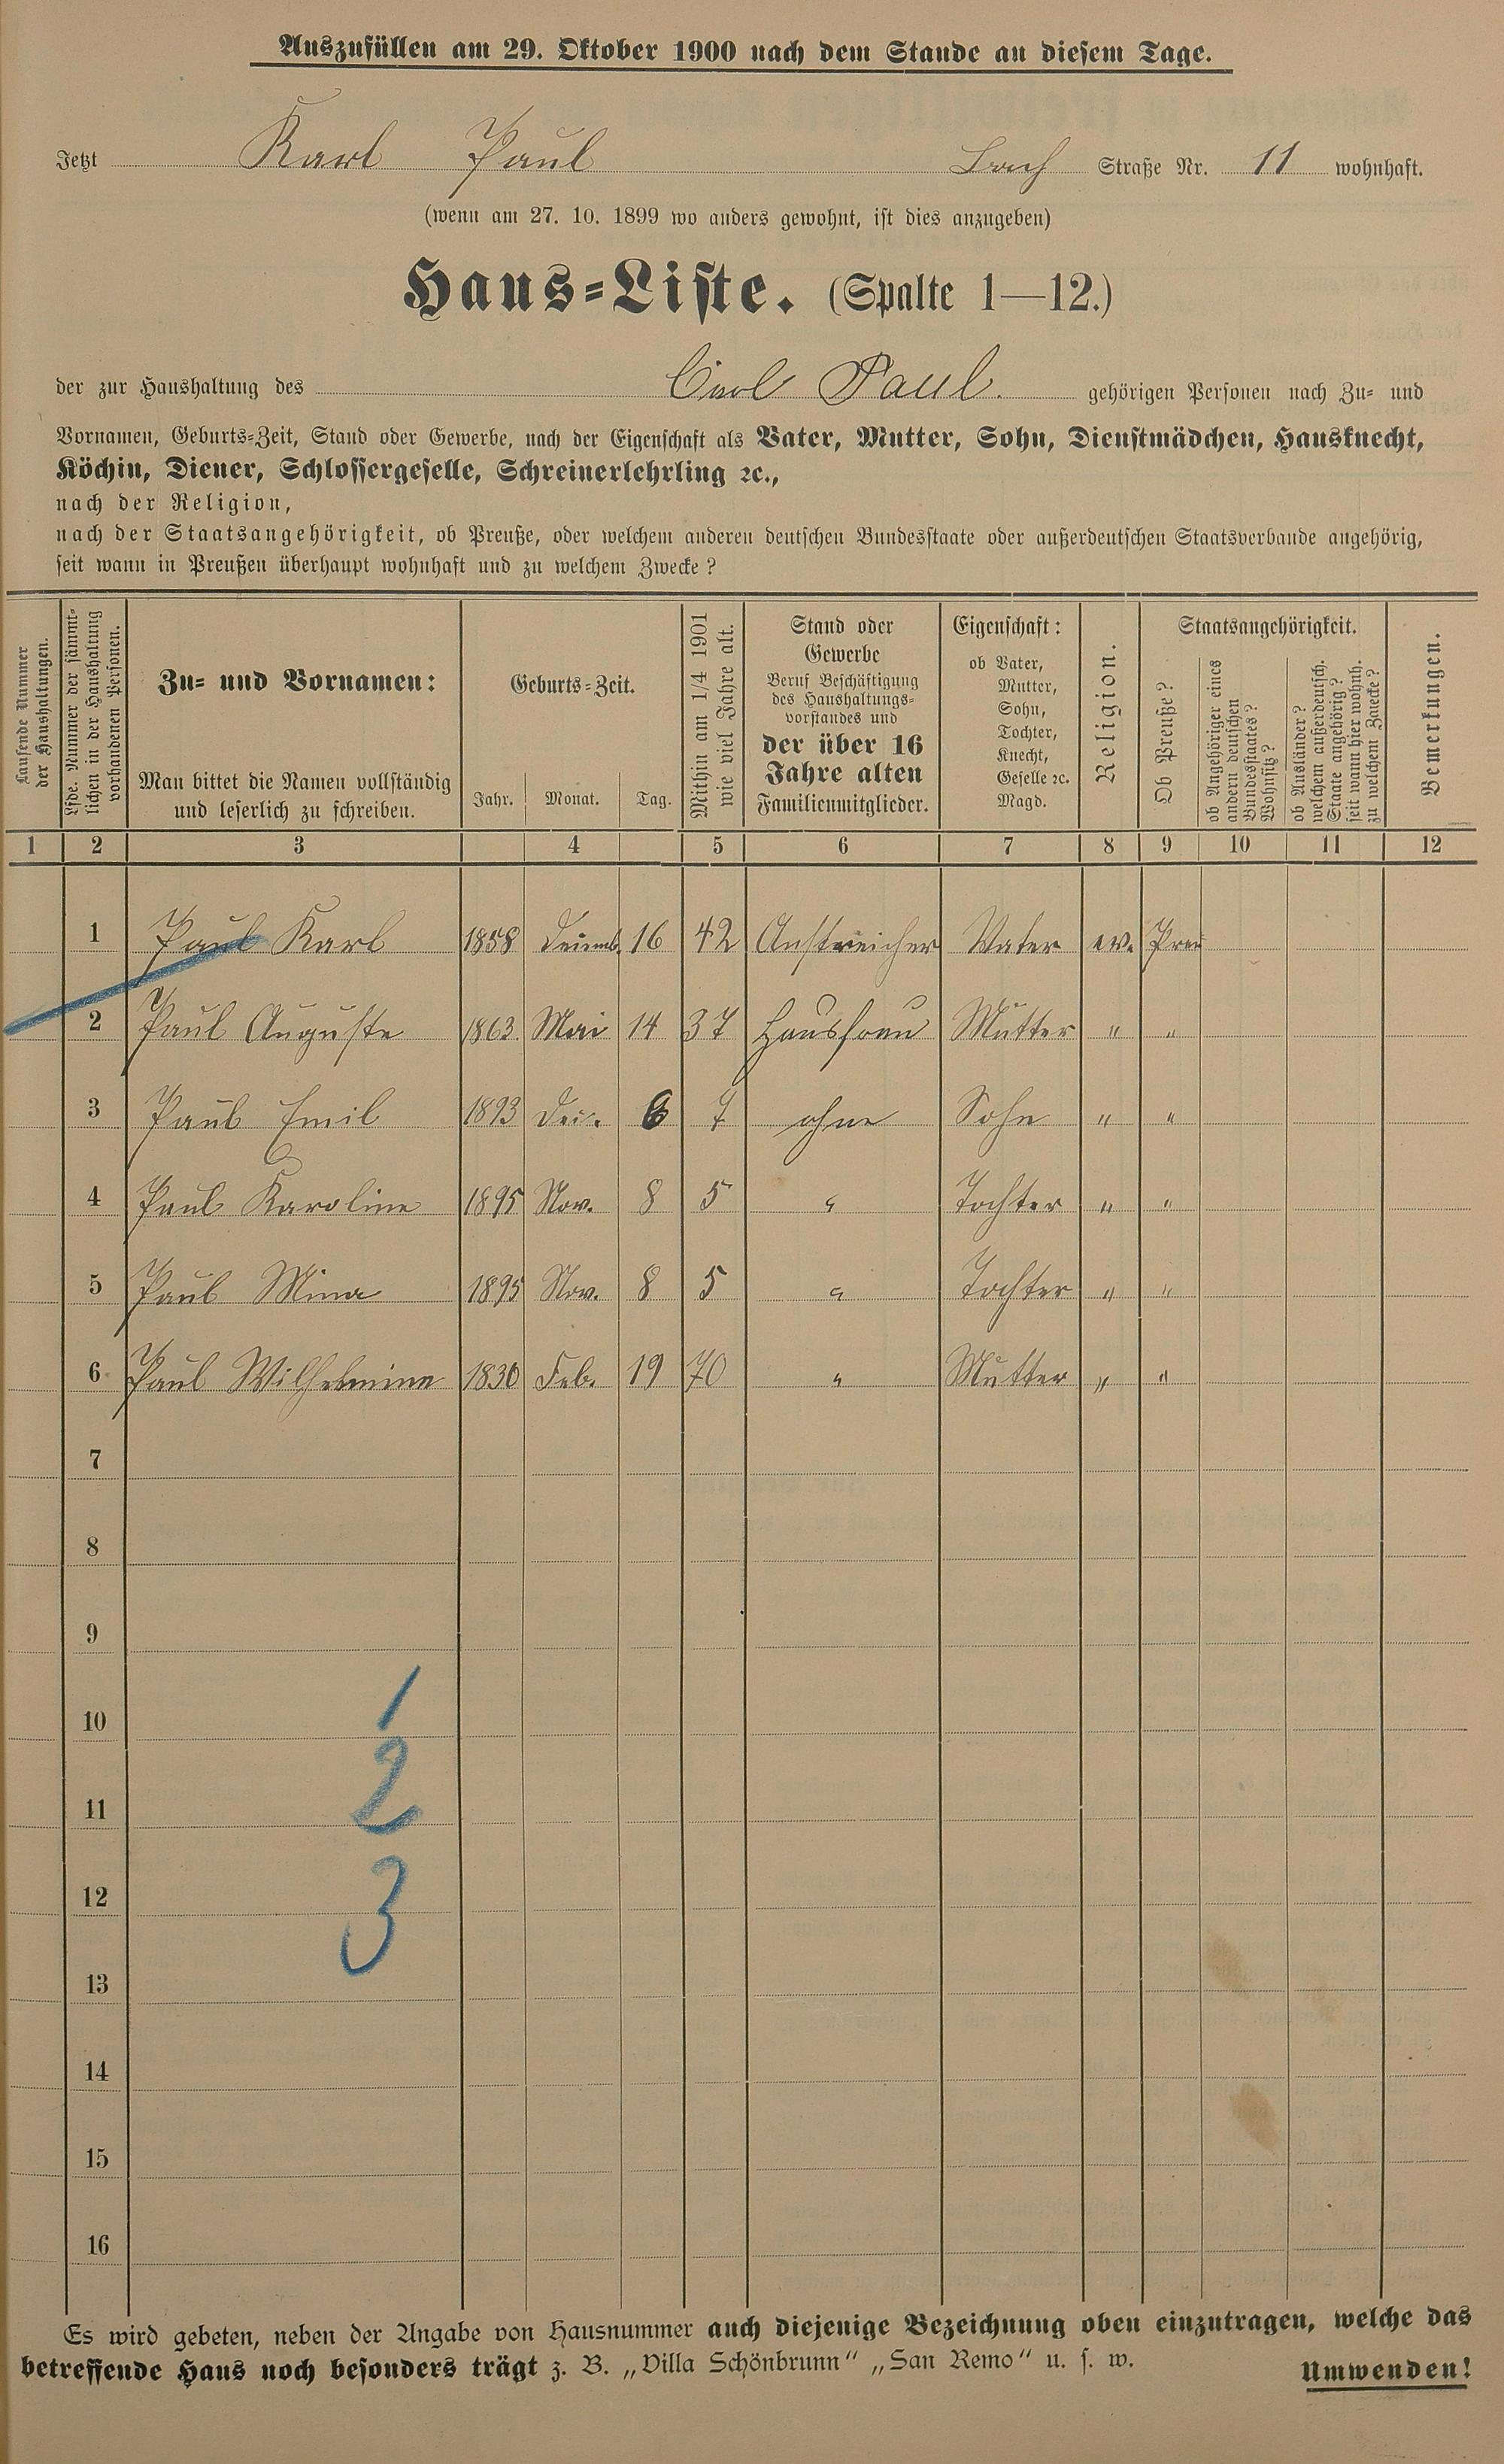 Auszufüllen am 29. Oktober 1900 nach dem Stande an diesem Tage.
Jetzt Karl Paul Bach Straße Nr. 11 wohnhaft.
(wenn am 27. 10. 1899 wo anders gewohnt, ist dies anzugeben)
Haus-Liste. (Spalte 1—12.)
der zur Haushaltung des Carl Paul. gehörigen Personen nach Zu- und
Vornamen, Geburts-Zeit, Stand oder Gewerbe, nach der Eigenschaft als Vater, Mutter, Sohn, Dienstmädchen, Hausknecht,
Köchin, Diener, Schlossergeselle, Schreinerlehrling ꝛc.,
nach der Religion,
nach der Staatsangehörigkeit, ob Preuße, oder welchem anderen deutschen Bundesstaate oder außerdeutschen Staatsverbande angehörig,
seit wann in Preußen überhaupt wohnhaft und zu welchem Zwecke?
Laufende Nummer
der Haushaltungen.
Lfde. Nummer der sämmt-
lichen in der Haushaltung
vorhandenen Personen.
Zu- und Vornamen:
Man bittet die Namen vollständig
und leserlich zu schreiben.
Geburts-Zeit.
Jahr. Monat. Tag.
Mithin am 1/4 1901
wie viel Jahre alt.
Stand oder
Gewerbe
Beruf Beschäftigung
des Haushaltungs-
vorstandes und
der über 16
Jahre alten
Familienmitglieder.
Eigenschaft:
ob Vater,
Mutter,
Sohn,
Tochter,
Knecht,
Geselle ꝛc.
Magd.
Religion.
Staatsangehörigkeit.
Ob Preuße?
ob Angehöriger eines
andern deutschen
Bundesstaates?
Wohnsitz?
ob Ausländer?
welchem außerdeutsch.
Staate angehörig?
seit wann hier wohnh.
zu welchem Zwecke?
Bemerkungen.
1 2 3 4 5 6 7 8 9 10 11 12
1 Paul Karl 1858 Dezemb. 16 42 Anstreicher Vater ev. Preu
2 Paul Auguste 1863. Mai 14 37 Hausfrau Mutter " "
3 Paul Emil 1893 Dez. 6 7 ohne Sohn " "
4 Paul Karoline 1895 Nov. 8 5 " Tochter " "
5 Paul Mina 1895 Nov. 8 5 " Tochter " "
6 Paul Wilhelmine 1830 Feb. 19 70 " Mutter " "
7
8
9
10
1
11
2
12
3
13
14
15
16
Es wird gebeten, neben der Angabe von Hausnummer auch diejenige Bezeichnung oben einzutragen, welche das
betreffende Haus noch besonders trägt z. B. „Villa Schönbrunn“ „San Remo“ u. s. w.
Umwenden!